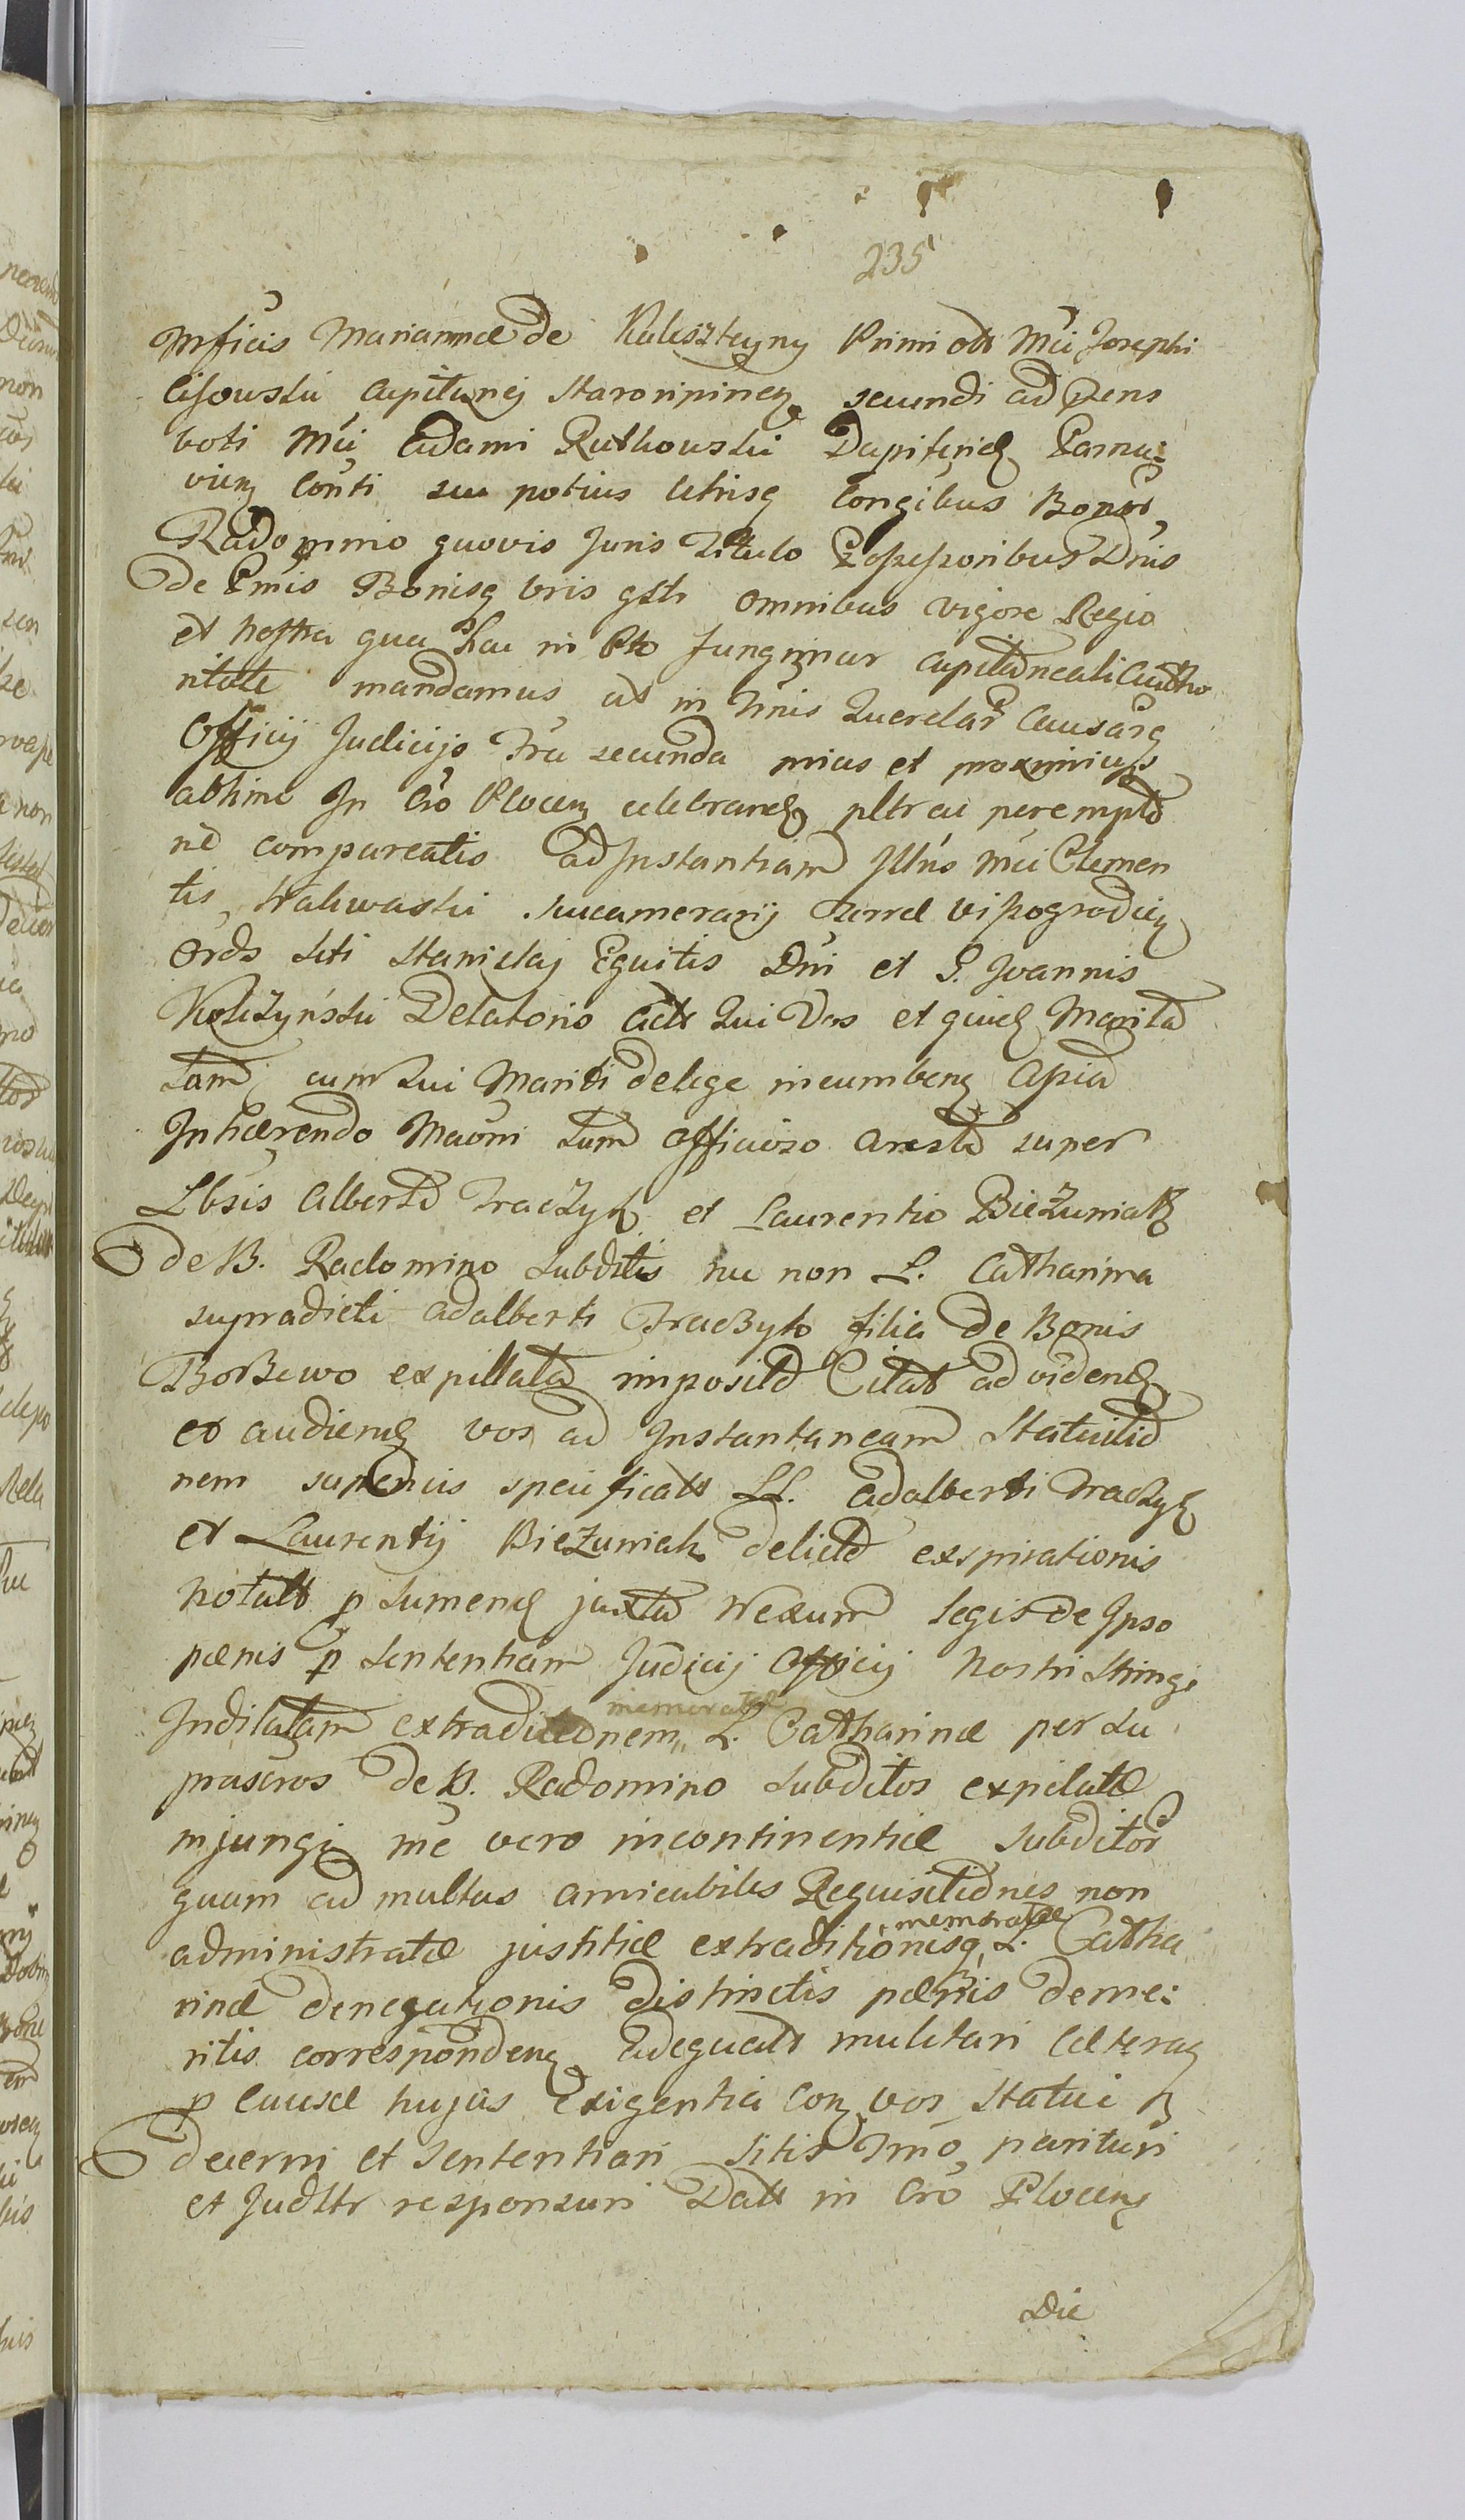 235
Mficis Mariannæ de Kulesztyny Primi ott Mci Josephi
Cisowski Capitanej Staroripineᶎ secundi ad prens
voti Mci Adami Rutkowski Dapiferid Parnu:
vieᶎ Conti seu potius utrisq Congibus Bonor
Radomino quovis Juris Titulo Possessoribus Dnis
de Pmis Bonisq vris gsti omnibus vigore Regia
et nostra qua hac in Pte fungimur Capitaneali Autho
ritate mandamus ut in Tmis Querelar Causarq
Officij Judicijs Fra secunda mius et proximius
abhinc In Cro Plocen celebrand pltr ac perempto
rie compareatis ad Instantiam Illris Mci Clemen
tis Nakwaski Succamerarij Terræ Vissogrodieᶎ
Ords Sti Stanislaj Equitis Dni et G. Joannis
Koliżyński Delatoris Actt Qui Vos et quid Marita
tam cum Sui Mariti de lege incumbenᶎ Apia
Inhærendo Maōni tum officioso Aresto super
Lbsis Alberto Traczyk et Laurentio Bieżuniak
de B. Radomino Subditis nec non L. Catharina
supradicti Adalberti Traczyk filia de Bonis
Borzewo expillata imposito Citat ad videnᶑ
et audienᶑ vos ad Instantaneam Statuitio
nem superius specificatt LL. Adalberti Traczyk
et Laurentij Bieżuniak delicto expirationis
notatt p sumenᶑ juxta Nexum legis de Ipso
pænis p Sententiam Judicij Officij Nostri Stringi
Indilatam extraditionem memoratæ L. Catharinæ per su
prascros de B. Radomino Subditos expilatæ
injungi ine vero incontinentiæ Subditor
quam ad multas amicabiles Requisitiones non
administratæ justitiæ extraditionisq memoratæ L. Catha
rinæ denegationis distinctis pænis deme:
ritis correspondenᶎ adequatt mulctari Cæteraq
p Causæ hujus Exigentia Conᶎ vos Statui
decerni et Sententiari Sitis Tmo parituri
et Judltr responsuri Datt in Cro Plocenᶎ
Die